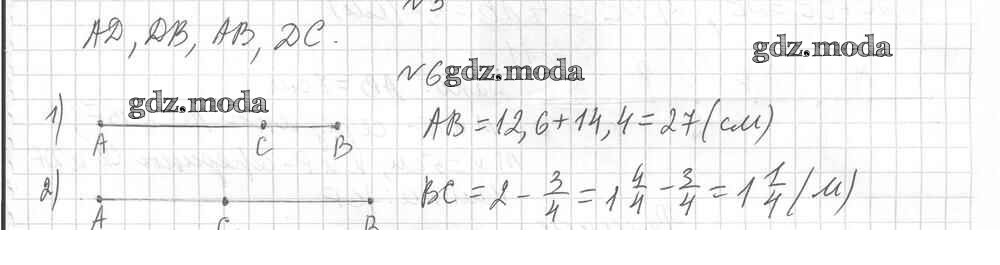 №5
AD, DB, AB, DC.
№6 gdz.moda
gdz.moda
1) gdz.moda
A C B
AB = 12,6 + 14,4 = 27 (см)
2)
A C B
BC = 2 - 3/4 = 1 4/4 - 3/4 = 1 1/4 (м)